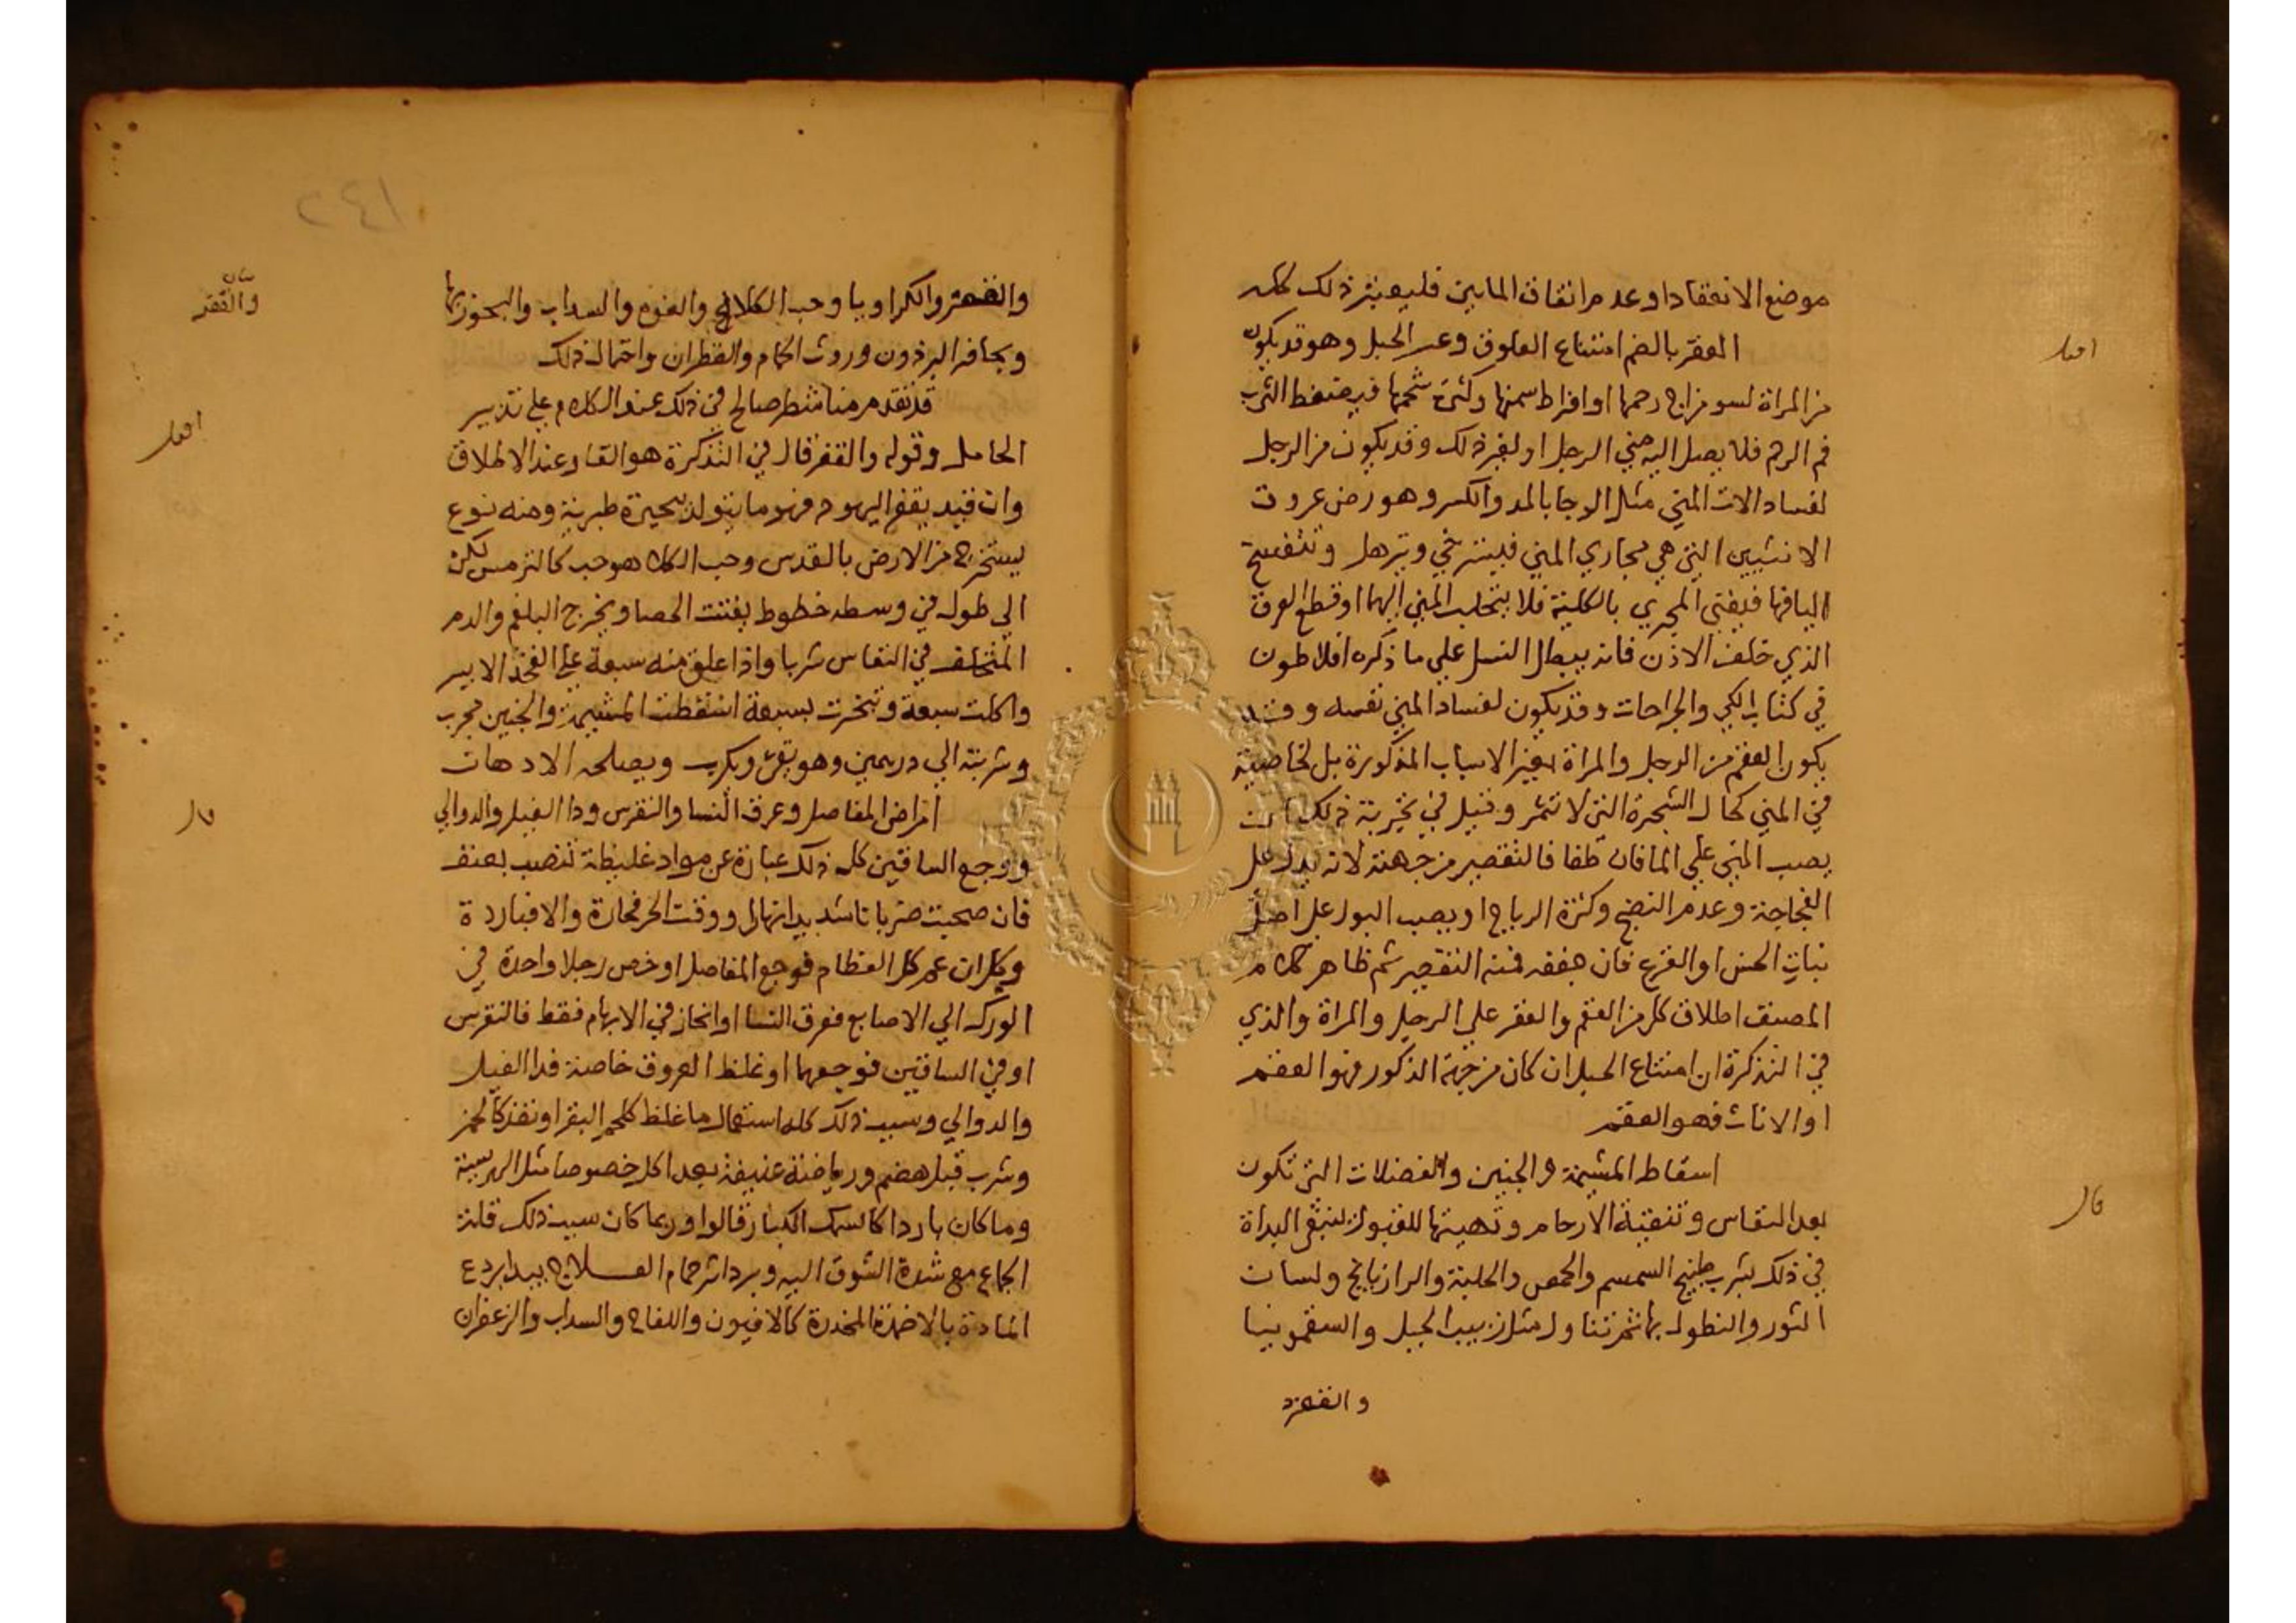 موضع الانعقاد او عدم اتفاق الماين فليعتبر ذلك كله
العقر بالضم امتناع العلوق وعسر الحبل وهو قد يكون
اقول
من المراة لسو مزاج رحمها او افراط سمنها وكثرة شحمها فيضغط الثرب
فم الرحم فلا يصل اليه مني الرجل او لغير ذلك وقد يكون من الرجل
لفساد الات المني مثل الوجا بالمد والكسر وهو رض عروق
الانثيين التي هي مجاري المني فيسترخي ويترهل وتتفسخ
اليافها فيفني المجري بالكلية فلا يتحلب المني اليهما او قطع العرق
الذي خلف الاذن فانه يبطل النسل علي ما ذكره افلاطون
في كتاب الكي والجراحات وقد يكون لفساد المني نفسه وقد
يكون العقم من الرجل والمراة لغير الاسباب المذكورة بل لخاصية
في المني كحال الشجرة التي لا تثمر وقيل في تجربة ذلك ان
يصب المني علي الما فان طفا فالتقصير من جهته لانه يدل علي
الفجاجة وعدم النضج وكثرة الرياح او يصب البول علي اصل
نبات الخس او القرع فان جففه فمنه التقصير ثم ظاهر كلام
المصنف اطلاق كل من العقم والعقر علي الرجل والمراة والذي
في التذكرة ان امتناع الحبل ان كان من جهة الذكور فهو العقم
او الاناث فهو العقم
اسقاط المشيمة والجنين والفضلات التي تكون
قال
بعد النفاس وتنقية الارحام وتهيتها للقبول ينبغي البداة
في ذلك بشرب طبيخ السمسم والحمص والحلبة والرازيانج ولسان
الثور والنطول بها ثم تناول مثل زبيب الجبل والسقمونيا
والقفر
٢٤١
والقفر والكراويا وحب الكلاي والفوم والسداب والبخور بها
بيان
والقفر
وبحافر البرذون وروث الحمام والقطران واحتمال ذلك
قد تقدم منا شطر صالح في ذلك عند الكلام علي تدبير
اقول
الحامل وقوله والقفر قال في التذكرة هو القار عند الاطلاق
وان قيد بقفر اليهود فهو ما يتولد ببحيرة طبرية ومنه نوع
يستخرج من الارض بالقدس وحب الكلا هو حب كالترمس لكن
الي طول في وسطه خطوط يفتت الحصا ويخرج البلغم والدم
المتخلف في النفاس شربا واذا علق منه سبعة علي الفخذ الايسر
واكلت سبعة وتبخرت بسبعة اسقطت المشيمة والجنين مجرب
وشربته الي درهمين وهو يقي ويكرب ويصلحه الادهان
امراض المفاصل وعرق النسا والنقرس ودا الفيل والدوالي
قال
ووجع الساقين كله ذلك عبارة عن مواد غليظة تنصب بعنف
فان صحبت ضربانا شديدا نهارا ووقت الحر فحارة والا فباردة
ويكل ان عم كل العظام فوجع المفاصل او خص رجلا واحدة في
الورك الي الاصابع فعرق النسا او انحاز في الابهام فقط فالنقرس
او في الساقين فوجعهما او غلظ العروق خاصة فدا الفيل
والدوالي وسبب ذلك كله استعمال ما غلظ كلحم البقر او نفذ كالخمر
وشرب قبل هضم ورياضة عنيفة بعد اكل خصوصا مثل الهريسة
وما كان باردا كالسمك الكبار قالوا وربما كان سبب ذلك قلة
الجماع مع شدة الشوق اليه وبرد اثر حمام العــلاج يبدا بردع
المادة بالاضمدة المخدرة كالافيون واللفاح والسداب والزعفران